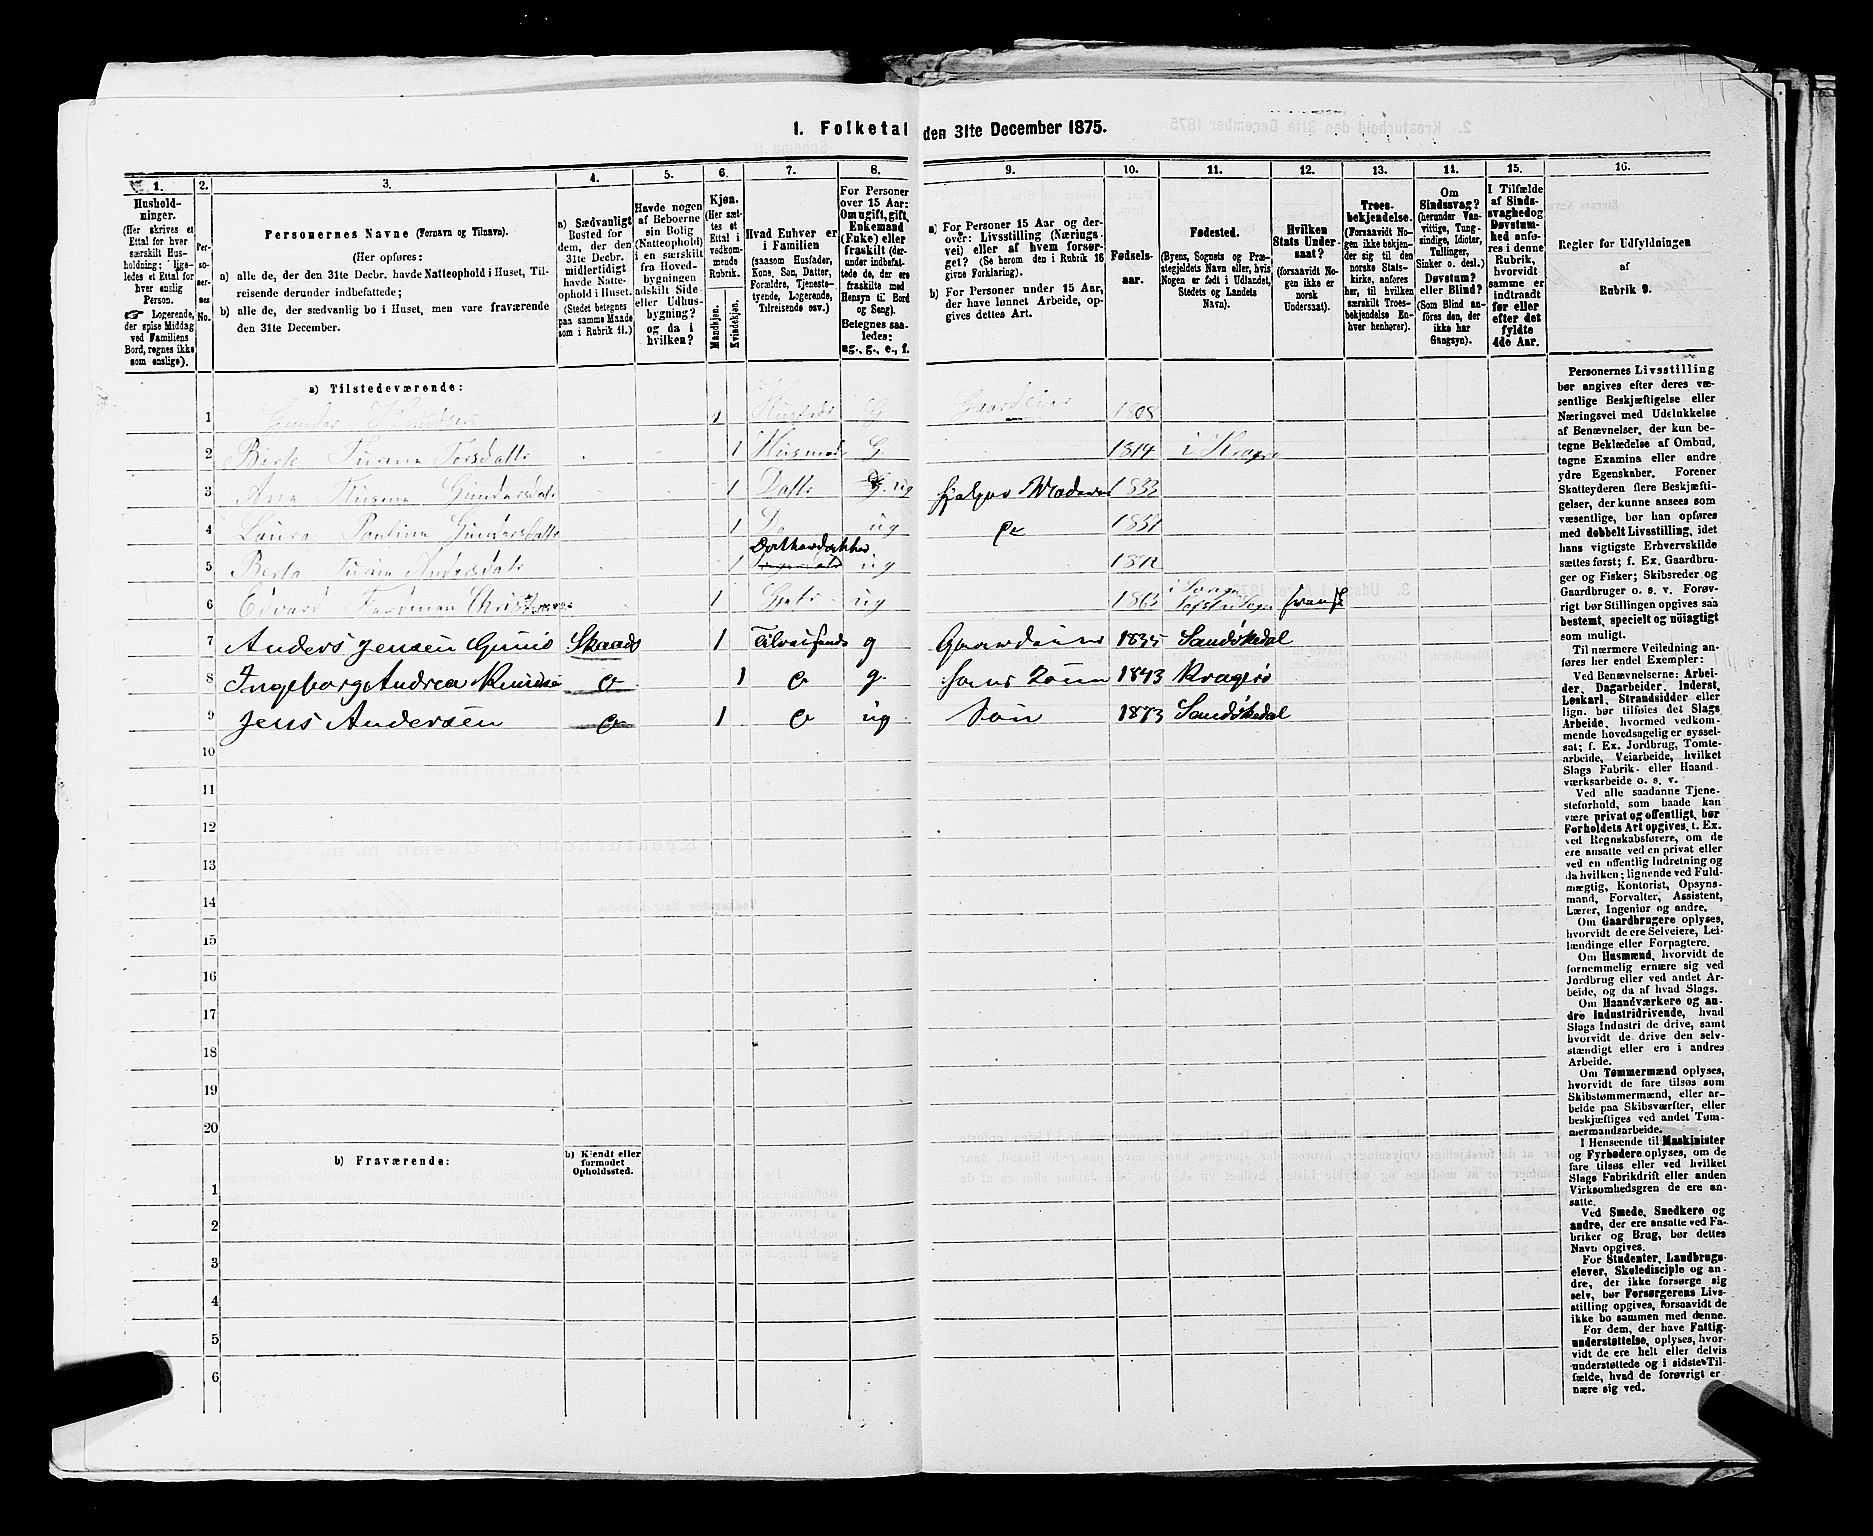 1. Folketal den 31te December 1875.
1.
Husholdninger.
(Her skrives et Ettal for hver særskilt Husholdning; ligeledes et Ettal for hver enslig Person.
☞ Logerende, der spise Middag ved Familiens Bord, regnes ikke som enslige).
2.
Personernes No.
3.
Personernes Navne (Fornavn og Tilnavn).
(Her opføres:
a) alle de, der den 31te Decbr. havde Natteophold i Huset, Tilreisende derunder indbefattede;
b) alle de, der sædvanlig bo i Huset, men vare fraværende den 31te December.
4.
a) Sædvanligt Bosted for dem, der den 31te Decbr. midlertidigt havde Natteophold i Huset. (Stedet betegnes paa samme Maade som i Rubrik 11.)
5.
Havde nogen af Beboerne sin Bolig (Natteophold) i en særskilt fra Hovedbygningen adskilt Side eller Udhusbygning? og da i hvilken?
6.
Kjøn.
(Her sættes et Ettal i vedkommende Rubrik.
Mandkjøn.
Kvindekjøn.
7.
Hvad Enhver er i Familien
(saasom Husfader, Kone, Søn, Datter, Forældre, Tjenestetyende, Logerende, Tilreisende osv.)
8.
For Personer over 15 Aar: Om ugift, gift, Enkemand (Enke) eller fraskilt (derunder indbefattede de, der ere fraskilte med Hensyn til Bord og Seng).
Betegnes saaledes:
ug., g., e., f.
9.
a) For Personer 15 Aar og derover: Livsstilling (Næringsvei) eller af hvem forsørget? (Se herom den i Rubrik 16 givne Forklaring).
b) For Personer under 15 Aar, der have lønnet Arbeide, opgives dettes Art.
10.
Fødselsaar.
11.
Fødested.
(Byens, Sognets og Præstegjeldets Navn eller, hvis Nogen er født i Udlandet, Stedets og Landets Navn).
12.
Hvilken Stats Undersaat?
(forsaavidt Nogen ikke er norsk Undersaat).
13.
Troesbekjendelse.
(Forsaavidt Nogen ikke bekjender sig til den norske Statskirke, anføres her, til hvilken særskilt Troesbekjendelse Enhver henhører).
14.
Om Sindssvag? (herunder Vanvittige, Tungsindige, Idioter, Tullinger, Sinker o. desl.)
Døvstum? eller Blind?
(Som Blind anføres den, der ikke har Gangsyn).
15.
I Tilfælde af Sindssvaghed og Døvstumhed anføres i denne Rubrik, hvorvidt samme er indtraadt før eller efter det fyldte 4de Aar.
16.
Regler for Udfyldningen
af
Rubrik 9.
a) Tilstedeværende:
1 Gunder Knudsen 1 G Gaardeier 1808
2 Berte Turine Torsdatter 1 Husmoder G 1814 i Kragerø
3 Ane Gundersdatter 1 Datter ug hjelper Moderen 1832
4 Laura Pauline Gundersdatter 1 ug
5 Berta Turine Andersdatr 1 Datterdatter ug
6 Edvard 1 Gjet ug 1863
7 Anders Jensen 1 Tilreisende g Gaardeier 1835 Sandøkedal
8 Ingeborg Andrea Knudsen 1 g. hans Kone 1843 Kragerø
9 Jens Andersen 1 ug Søn 1873 Sandøkedal
10
11
12
13
14
15
16
17
18
19
20
b) Fraværende:
b) Kjendt eller formodet Opholdssted.
1
2
3
4
5
6
Personernes Livsstilling
bør angives efter deres væ-
sentlige Beskjæftigelse eller
Næringsvei med Udelukkelse
af Benævnelser, der kun be-
tegne Beklædelse af Ombud,
tagne Examina eller andre
ydre Egenskaber. Forener
Skatteyderen flere Beskjæfti-
gelser, der kunne ansees som
væsentlige, bør han opføres
med dobbelt Livsstilling, idet
hans vigtigste Erhvervskilde
sættes først; f. Ex. Gaardbru-
ger og Fisker; Skibsreder og
Gaardbruger o. s. v. Forøv-
rigt bør Stillingen opgives saa
bestemt, specielt og nøiagtigt
som muligt.
Til nærmere Veiledning an-
føres her endel Exempler:
Ved Benævnelserne: Arbei-
der, Dagarbeider, Inderst,
Løskarl, Strandsidder eller
lign. bør tilføies det Slags
Arbeide, hvormed vedkom-
mende hovedsagelig er syssel-
sat; f. Ex. Jordbrug, Tomte-
arbeide, Veiarbeide, hvilket
Slags Fabrik- eller Haand-
værksarbeide o. s. v.
Ved alle saadanne Tjene-
steforhold, som baade kan
være privat og offentligt, bør
Forholdets Art opgives, t. Ex.
ved Regnskabsførere, om de
ere ansatte ved en privat eller
ved en offentlig Indretning og
da hvilken; lignende ved Fuld-
mægtig, Kontorist, Opsyns-
mand, Forvalter, Assistent,
Lærer, Ingeniør og andre.
Om Gaardbrugere oplyses,
hvorvidt de ere Selveiere, Lei-
lændinge eller Forpagtere.
Om Husmænd, hvorvidt de
fornemmelig ernære sig ved
Jordbrug eller ved andet Ar-
beide, og da af hvad Slags.
Om Haandværkere og an-
dre Industridrivende, hvad
Slags Industri de drive, samt
hvorvidt de drive den selv-
stændigt eller ere i andres
Arbeide.
Om Tømmermænd oplyses,
hvorvidt de fare tilsøs som
Skibstømmermænd, eller ar-
beide paa Skibsværfter, eller
beskjæftiges ved andet Tøm-
mermandsarbeide.
I Henseende til Maskinister
og Fyrbødere oplyses, om de
fare tilsøs eller ved hvilket
Slags Fabrikdrift eller anden
Virksomhedsgren de ere an-
satte.
Ved Smede, Snedkere og
andre, der ere ansatte ved Fa-
briker og Brug, bør dettes
Navn opgives.
For Studenter, Landbrugs-
elever, Skoledisciple og an-
dre, der ikke forsørge sig
selv, bør Forsørgerens Livs-
stilling opgives, forsaavidt de
ikke bo sammen med denne.
For dem, der have Fattig-
understøttelse, oplyses, hvor-
vidt de ere helt eller delvis
understøttede og i sidste Til-
fælde, hvad de forøvrigt er-
nære sig ved.